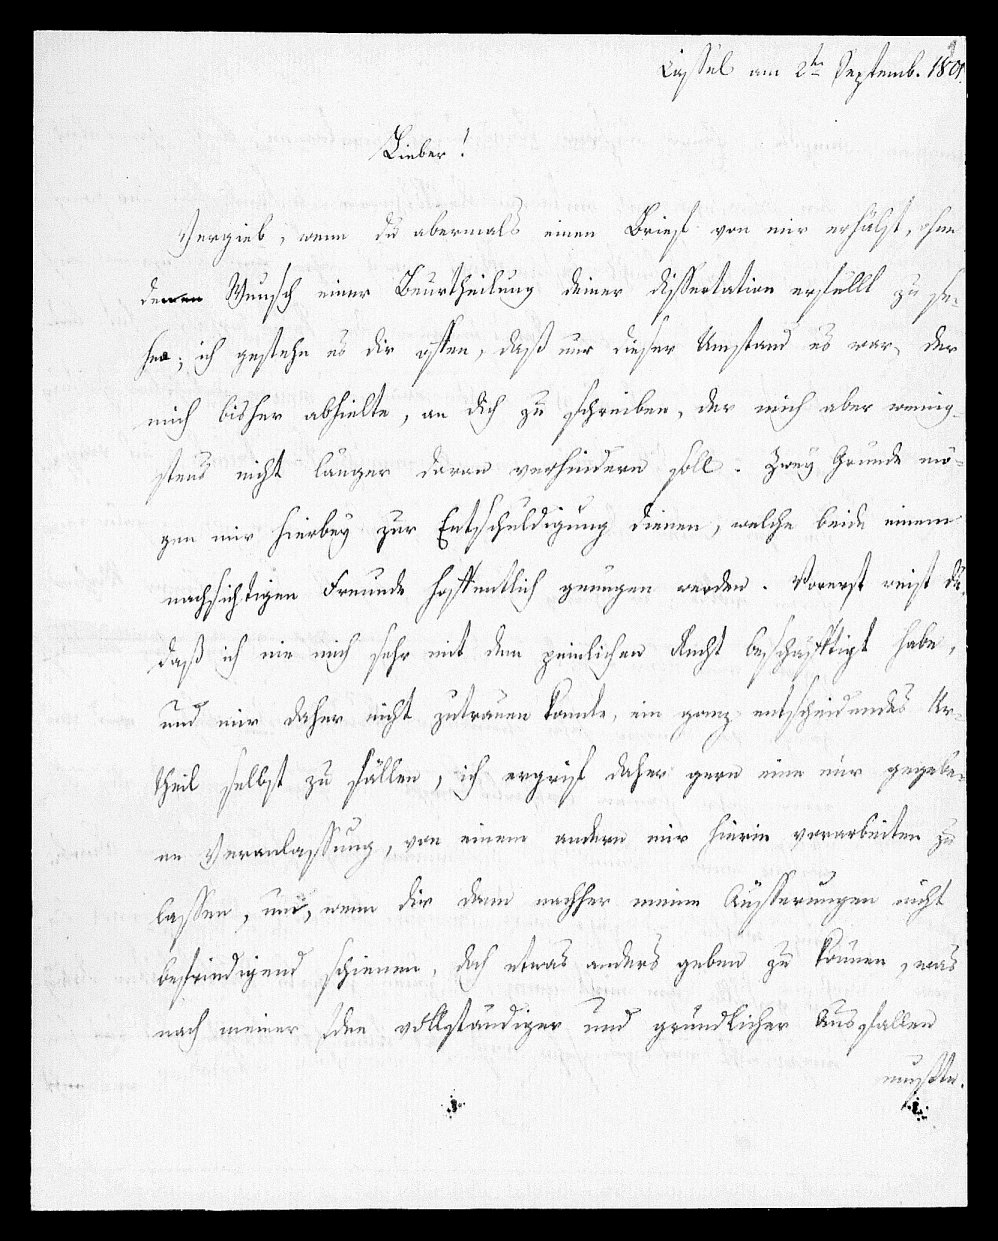 Cassel am 2ten Septemb. 1801.
Lieber!
Vergieb, wenn du abermals einen Brief von mir erhälst, ohne
deinen Wunsch einer Beurtheilung deiner dissertation erfüllt zu se-
hen; ich gestehe es dir offen, daß nur dieser Umstand es war, der
mich bisher abhielte, an dich zu schreiben, der mich aber wenig-
stens nicht länger daran verhindern soll. Zwey Gründe mö-
gen mir hierbey zur Entschuldigung dienen, welche beide einem
nachsichtigen Freunde hoffentlich genügen werden. Vorerst weist du,
daß ich nie mich sehr mit dem peinlichen Recht beschäftigt habe,
und mir daher nicht zutrauen konnte, ein ganz entscheidendes Ur-
theil selbst zu fällen, ich ergrif daher gern eine mir gegebe-
ne Veranlassung, von einem andern mir hierin vorarbeiten zu
lassen, und, wenn dir dann nachher meine Äusserungen nicht
befriedigend schienen, doch etwas anders geben zu können, was
nach meiner Idee vollständiger und gründlicher ausfallen
musste.